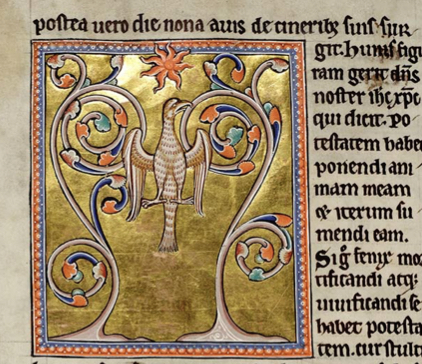 postea uero die nona auis de cinerib; suis sur
git. Huius figu
ram gerit dñs
noster ihc xpc
qui dicit. Po
testatem habeo
ponendi ani
mam meam
& iterum su
mendi eam.
Si g° fenix mor
tificandi atq;
uiuificandi se
habet potesta
tem. cur stulti